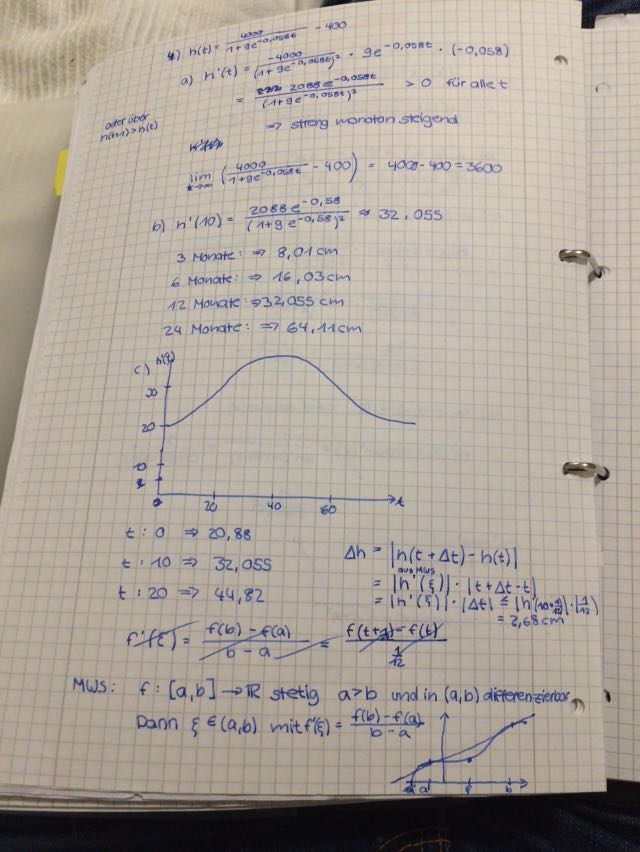 4) h(t) = 4000/(1+9e^-0,058t) - 400
a) h'(t) = -4000/(1+9e^-0,058t)² · 9e^-0,058t · (-0,058)
= 2088e^-0,058t/(1+9e^-0,058t)² > 0 für alle t
oder über
h(t+1) > h(t)
=> streng monoton steigend
lim t→∞ (4000/(1+9e^-0,058t) - 400) = 4000-400 = 3600
b) h'(10) = 2088e^-0,58/(1+9e^-0,58)² ≈ 32,055
3 Monate: => 8,01cm
6 Monate: => 16,03cm
12 Monate: => 32,055cm
24 Monate: => 64,11cm
c) h'(t)
30
20
10
20 40 60 t
t: 0 => 20,88
t: 10 => 32,055
t: 20 => 44,82
Δh = |h(t+Δt) - h(t)|
aus MWS
= |h'(ξ)| · |t+Δt-t|
= |h'(ξ)| · |Δt| ≤ |h'(10+1/12)| · |1/12|
= 2,68cm
f'(ξ) = (f(b) - f(a))/(b-a) = (f(t+1/12) - f(t))/(1/12)
MWS: f: [a,b] → ℝ stetig a>b und in (a,b) differenzierbar
Dann ξ ∈ (a,b) mit f'(ξ) = (f(b)-f(a))/(b-a)
a ξ b